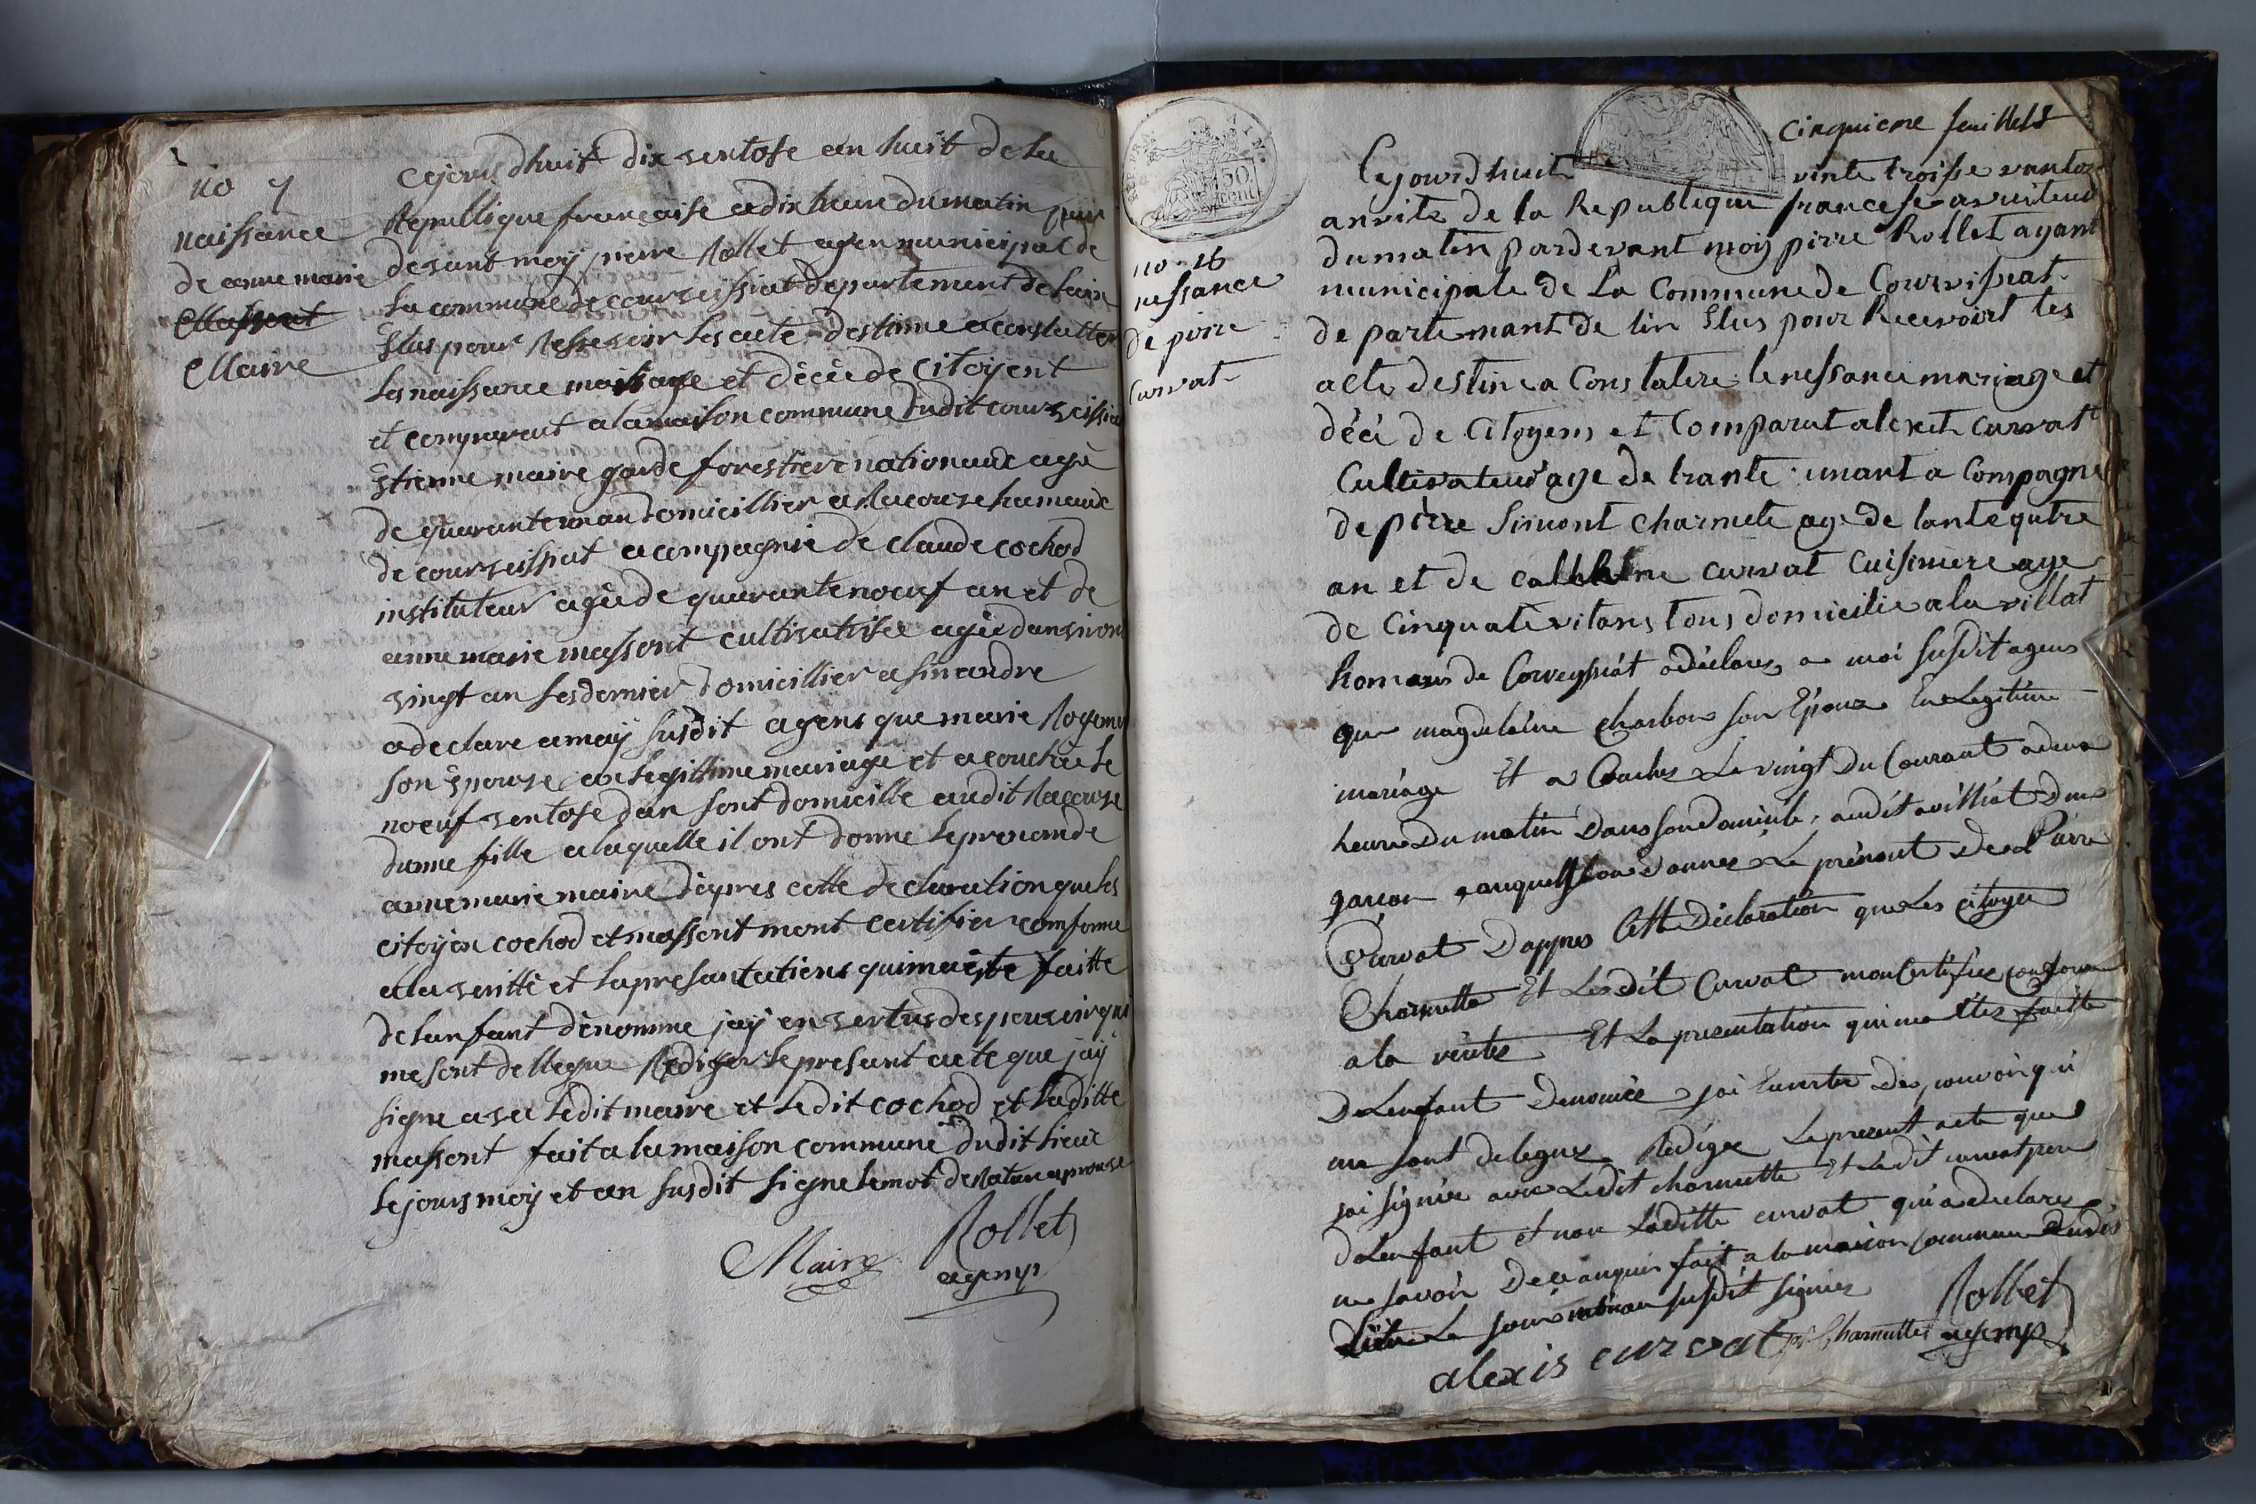 no 7
naissance
de anne marie
Massont
Maire
cejourdhuit dix ventose an huit de la
Republique francaise a dix heure du matin par
devant moy pierre Rollet agen municipal de
la commune de courveissiat departement de lain
Elus pour Ressevoir les acte destinne a constatter
les naissance mariage et décè de Citoyent
et comparut a la maison commune dudit courveissiat
Etienne maire garde forestiere nationaux agé
de quarante un an domicillier a Racouse hameaux
de courveissiat acompagnié de claude cochod
instituteur agé de quarante noeuf an et de
anne marie massont cultivatrisee agé danviront
vingt an les dernier domicillier a simandre
a declare a moÿ susdit agent que marie
son Epouse en legittime mariage et acouchée le
noeuf ventose dan sont domicille audit Racouse
dunne fille a laquelle il ont donne le prenom de
anne marie maire dèpres cette declaration que les
citoÿen cochod et massont mont certifier comforme
alla verittè et la presantatient qui ma ète faitte
de lanfant dènomme jaÿ en vertus des pouvoir qui
me sont dellegue Rediger le presant acte que jaÿ
signe avec ledit maire et ledit cochod et laditte
massont fait a la maison commune dudit lieux
le jours moy et an susdit signe le mot de Rature aprouve
Maire Rollet
agemp
cinquieme feuillets
30
cent
no 16
nessance
de pirre
Curvat
Cejourdhuit vinte troisse vantos
anvite de la Republique francese a vuiteur
du matin pardevant moy pirre Rollet agant
municipale de La Commune de Courvisiat
departemant de lin Elus pour Recevoirt les
acte destine a Constatere le nessance mariage et
déci de Citoyens et Comparut alexit curvatt
Cultivateur age de trante unant a Compagne
de pirre Simont charmete age de lante qutre
an et de catherine curvat Cuisiniere age
de Cinquate vitans tous domicilie a la villat
homaus de Corveyssiat a déclarer a moi susdit agens
que magdelaine charbon son Epouse En Legitime
mariage Et a Couches Le vingt Du Courant a deux
heure Du matin Dans son Domicile, audit avilliat Dun
garcon auquel Lon Donnee Le prénont De Pierre
Curvat Dappres Cette Déclaration que Les citoyen
Charmette Et Ledit Curvat mon Certifiee Conforme
a la vérité Et La presentation qui ma Etes faitte
De Lenfant Denomée jai En vertue Des pouvoir qui
me sont delegue Rédigee Le present acte que
jai signée avec Ledit charmette Et Ledit curvat pere
De Lenfant et non Laditte curvat qui a declare
ne savoir De ce anquis fait a la maison Commune Dudit
Lieu Le jour mois an susdit signer
alexis curvat Charmette Rollet
agemp